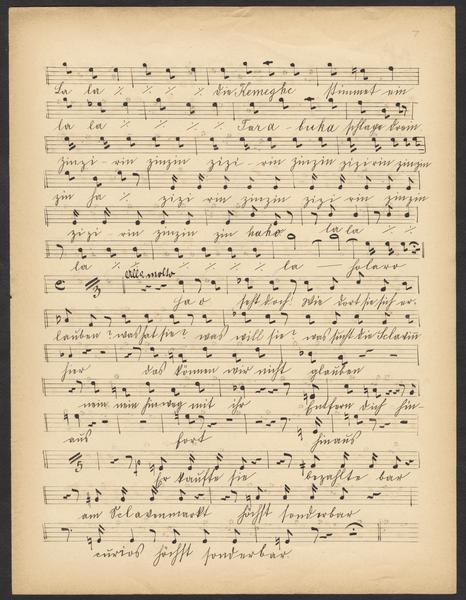 7
La la ٪ ٪ ٪ ٪ Die Kemeghe stimmet ein
la la ٪ ٪ ٪ ٪ Tara - buka schlage drein
zinzi - rin zinzin zizi - rin zinzin zizirin zinzin
zin ha ٪ zizi - rin zinzin zizi - rin zinzin
zizi - rin zinzin zin haha la la ٪ ٪
la ٪ ٪ ٪ ٪ ٪ la — holaro
All° molto
ha o seht doch! Wie dort sie sich er-
lauben? was hat sie? was will sie? was sucht die Sclavin
hier das können wir nicht glauben
nein nein hinweg mit ihr Entfern dich hin-
aus fort hinaus
Er kaufte sie bezahlte bar
am Sclavenmarkt höchst sonderbar
curios höchst sonderbar